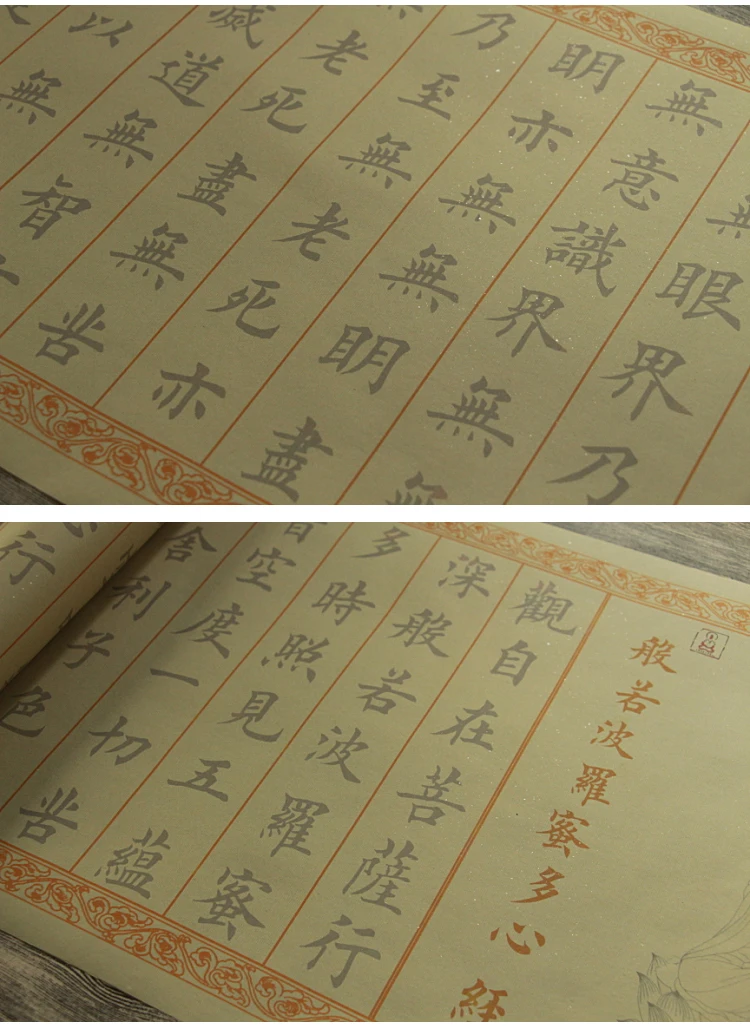 無眼界乃
無意識界無無
明亦無無明盡
乃至無老死亦
無老死盡無苦
滅道無智
以無
般若波羅蜜多心經
觀自在菩薩行
深般若波羅蜜
多時照見五蘊
皆空度一切苦
舍利子色
行